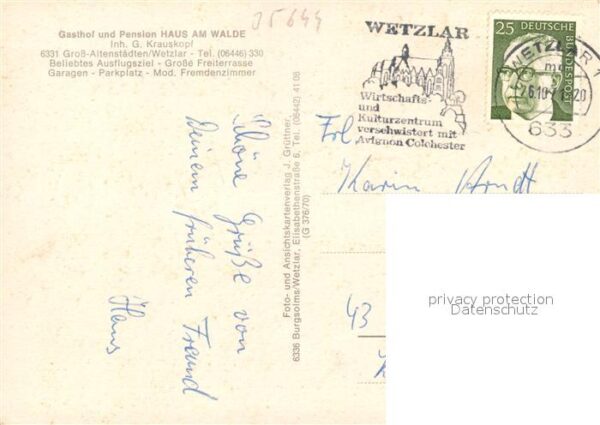 05644
Gasthof und Pension HAUS AM WALDE
Inh. G. Krauskopf
6331 Groß-Altenstädten/Wetzlar - Tel. (06446) 330
Beliebtes Ausflugsziel - Große Freiterrasse
Garagen - Parkplatz - Mod. Fremdenzimmer
WETZLAR
Wirtschafts-
und
Kulturzentrum
verschwistert mit
Avignon Colchester
25 DEUTSCHE
BUNDESPOST
WETZLAR 1
633
Schöne Grüße von
Deinem früheren Freund
Hans
Foto- und Ansichtskartenverlag J. Grüttner,
6336 Burgsolms/Wetzlar, Elisabethenstraße 6, Tel. (06442) 41 08
(G 376/70)
Frl.
Karin Arndt
43
privacy protection
Datenschutz